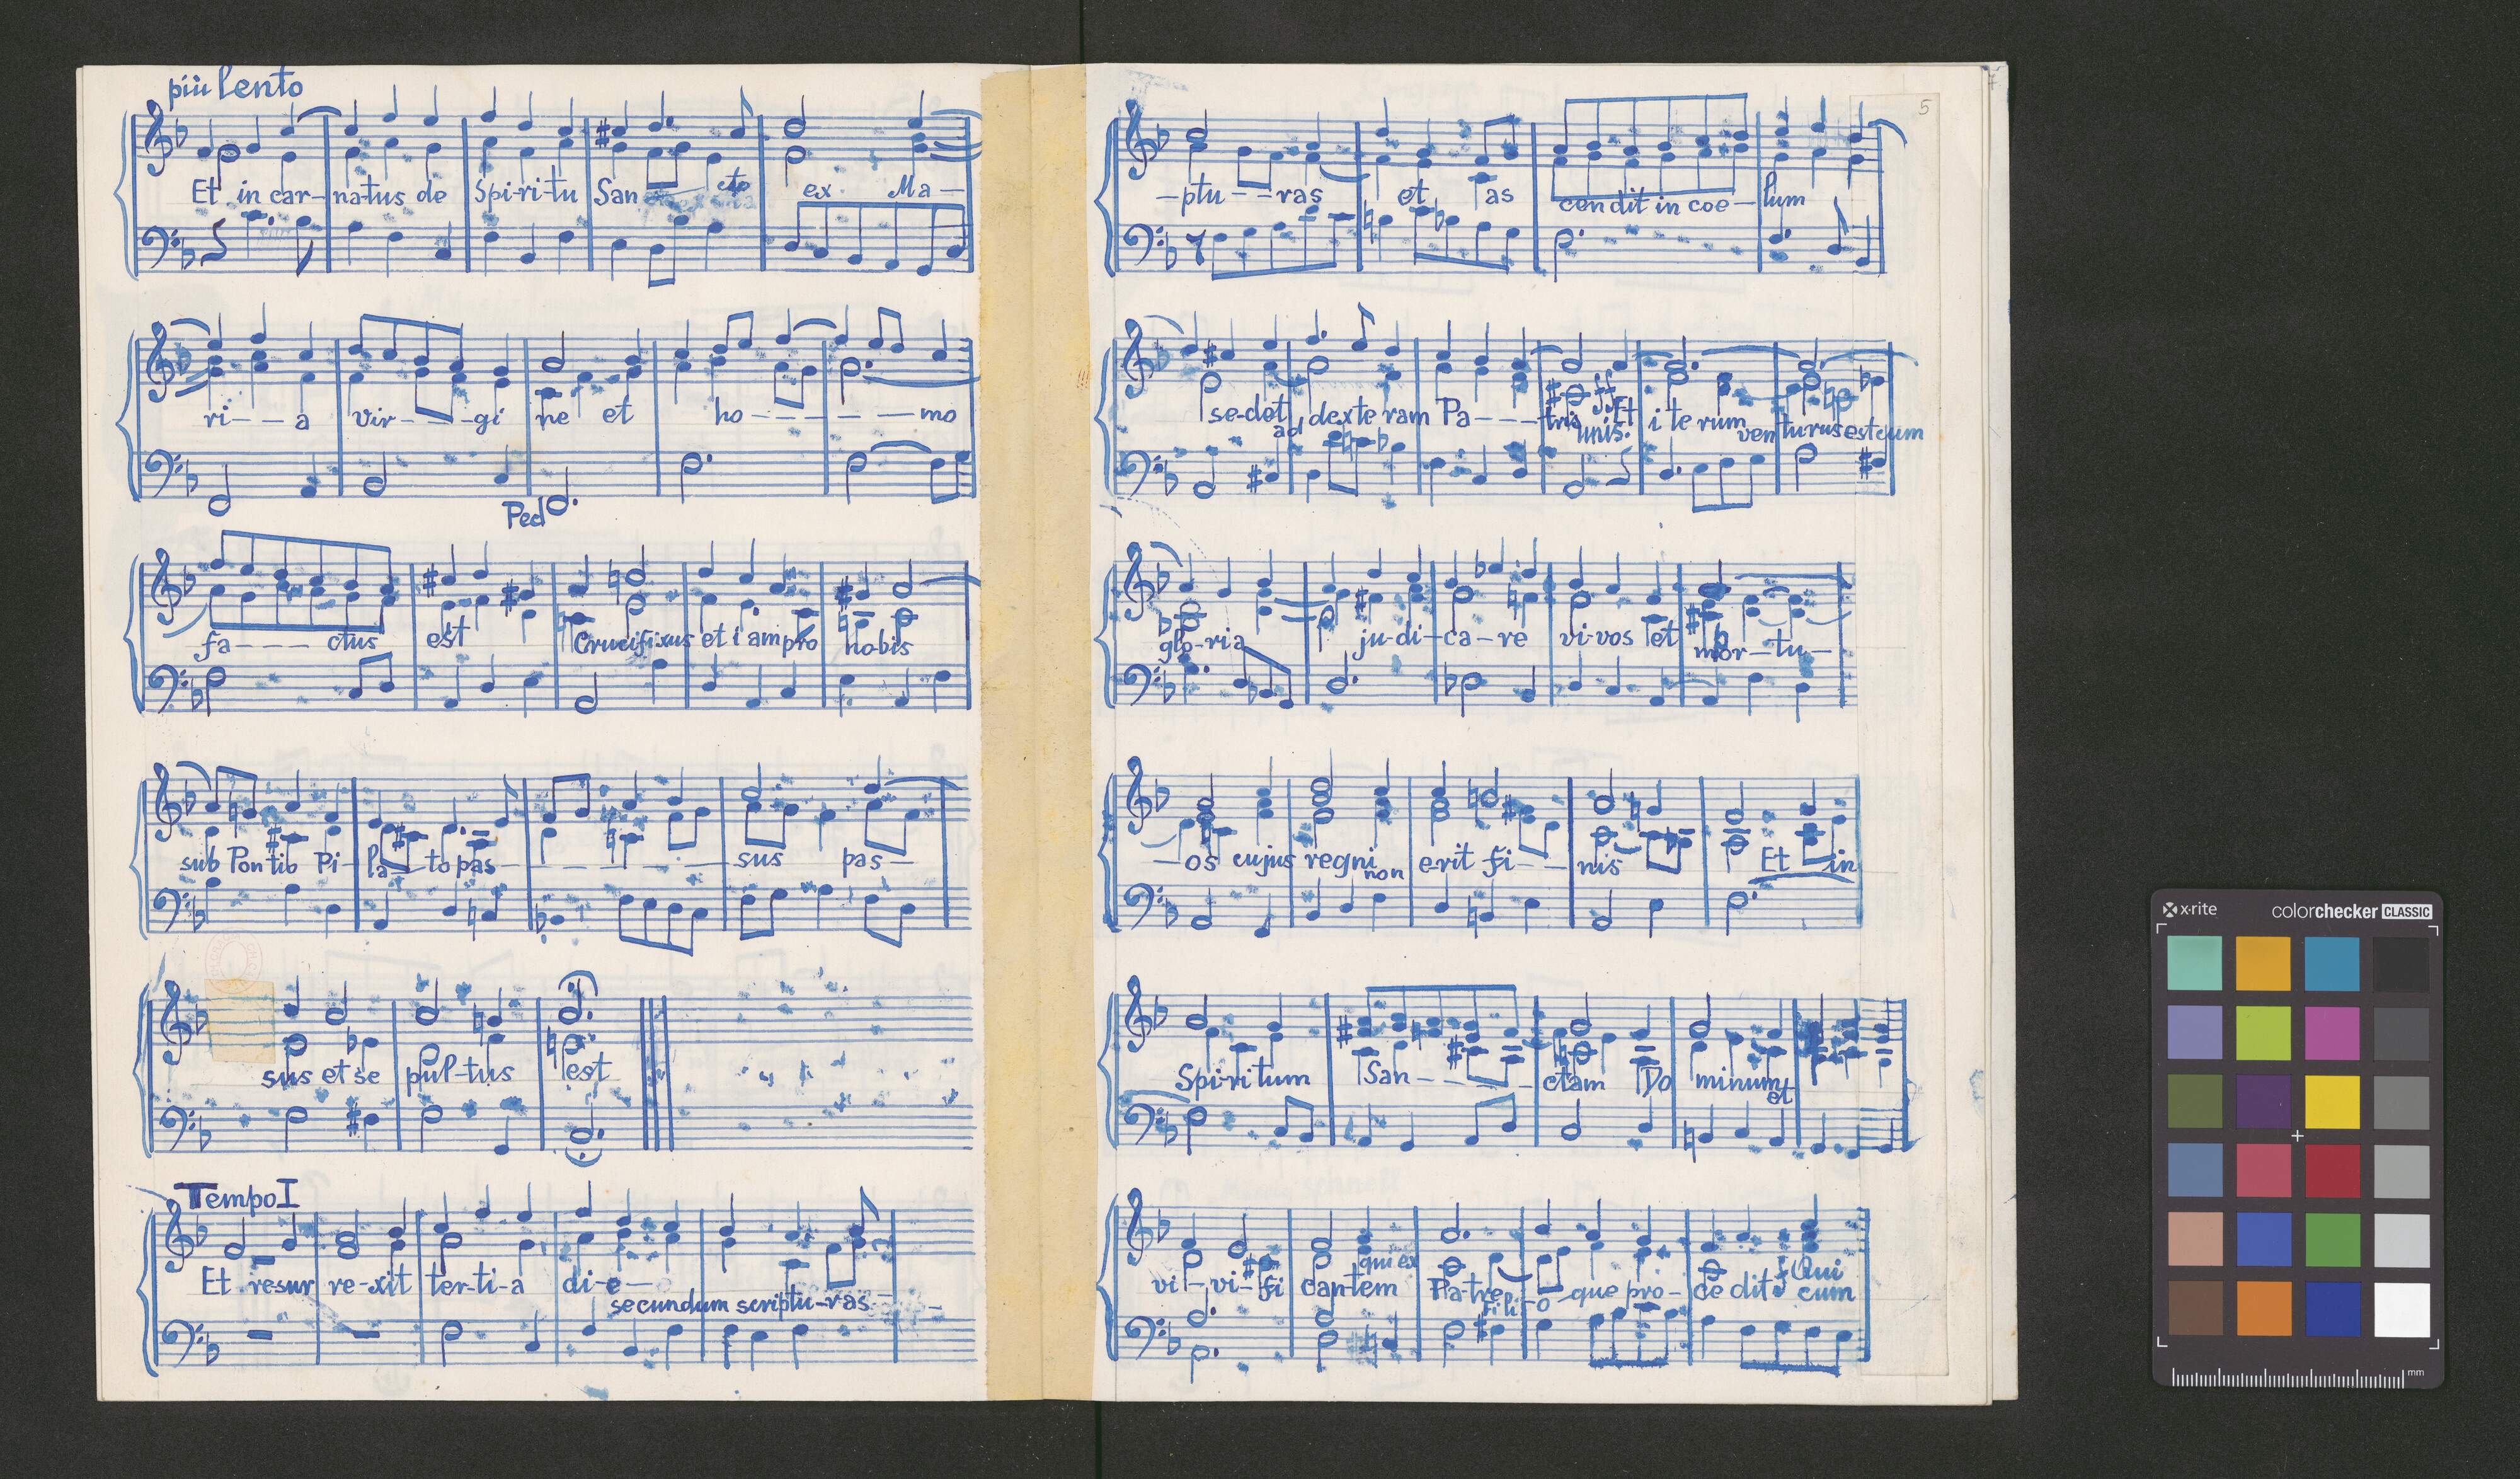 più lento
Et in car-natus de Spi-ri-tu San - cto ex Ma-
ri--a vir---gi ne et ho------mo
Ped
fa--- ctus est Crucifixus et i am pro nobis
sub Pontio Pi-la-to pas-------sus pas-
sus et se pul-tus est
Tempo I
Et resur re-xit ter-ti-a di-e-
secundum scriptu-ras--
5
-ptu--ras et as cen dit in coe-lum
se-det ad dexte ram Pa---tris Et i te rum venturus est cum
ff
unis.
glo-ria ju-di-ca-re vi-vos et mor-tu-
-os cujus regni non e-rit fi--nis Et in
Spi-ri tum San----ctam Do minum et
vi-vi-fi can-tem qui ex Pa-tre Fili-o-que pro-ce dit Qui cum
x-rite colorchecker CLASSIC
mm